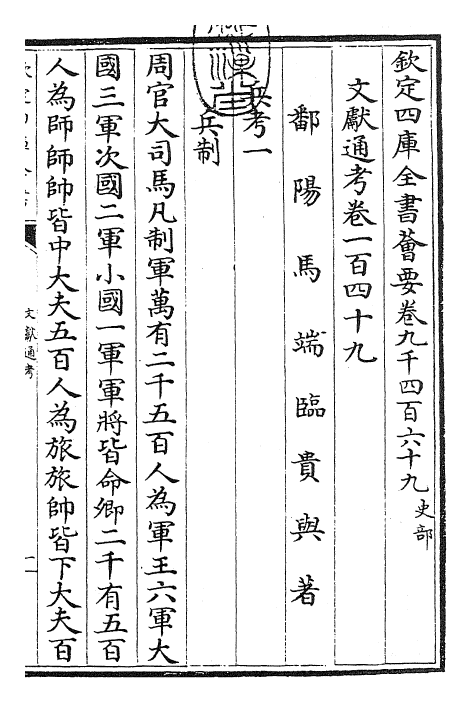 欽定四庫全書薈要卷九千四百六十九 史部
文獻通考卷一百四十九
鄱陽馬端臨貴與著
兵考一
兵制
周官大司馬凡制軍萬有二千五百人為軍王六軍大
國三軍次國二軍小國一軍軍將皆命卿二千有五百
人為師師帥皆中大夫五百人為旅旅帥皆下大夫百
欽定四庫全書
文獻通考